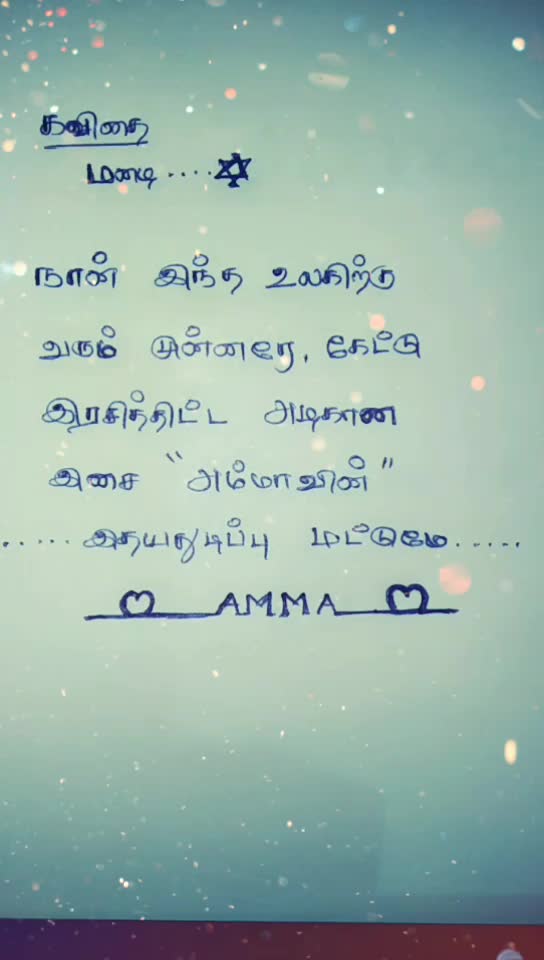 கவிதை
மழை....
நான் இந்த உலகிற்கு
வரும் முன்னரே, கேட்டு
இரசித்திட்ட அழகான
இசை "அம்மாவின்"
.....இதயதுடிப்பு மட்டுமே.....
AMMA